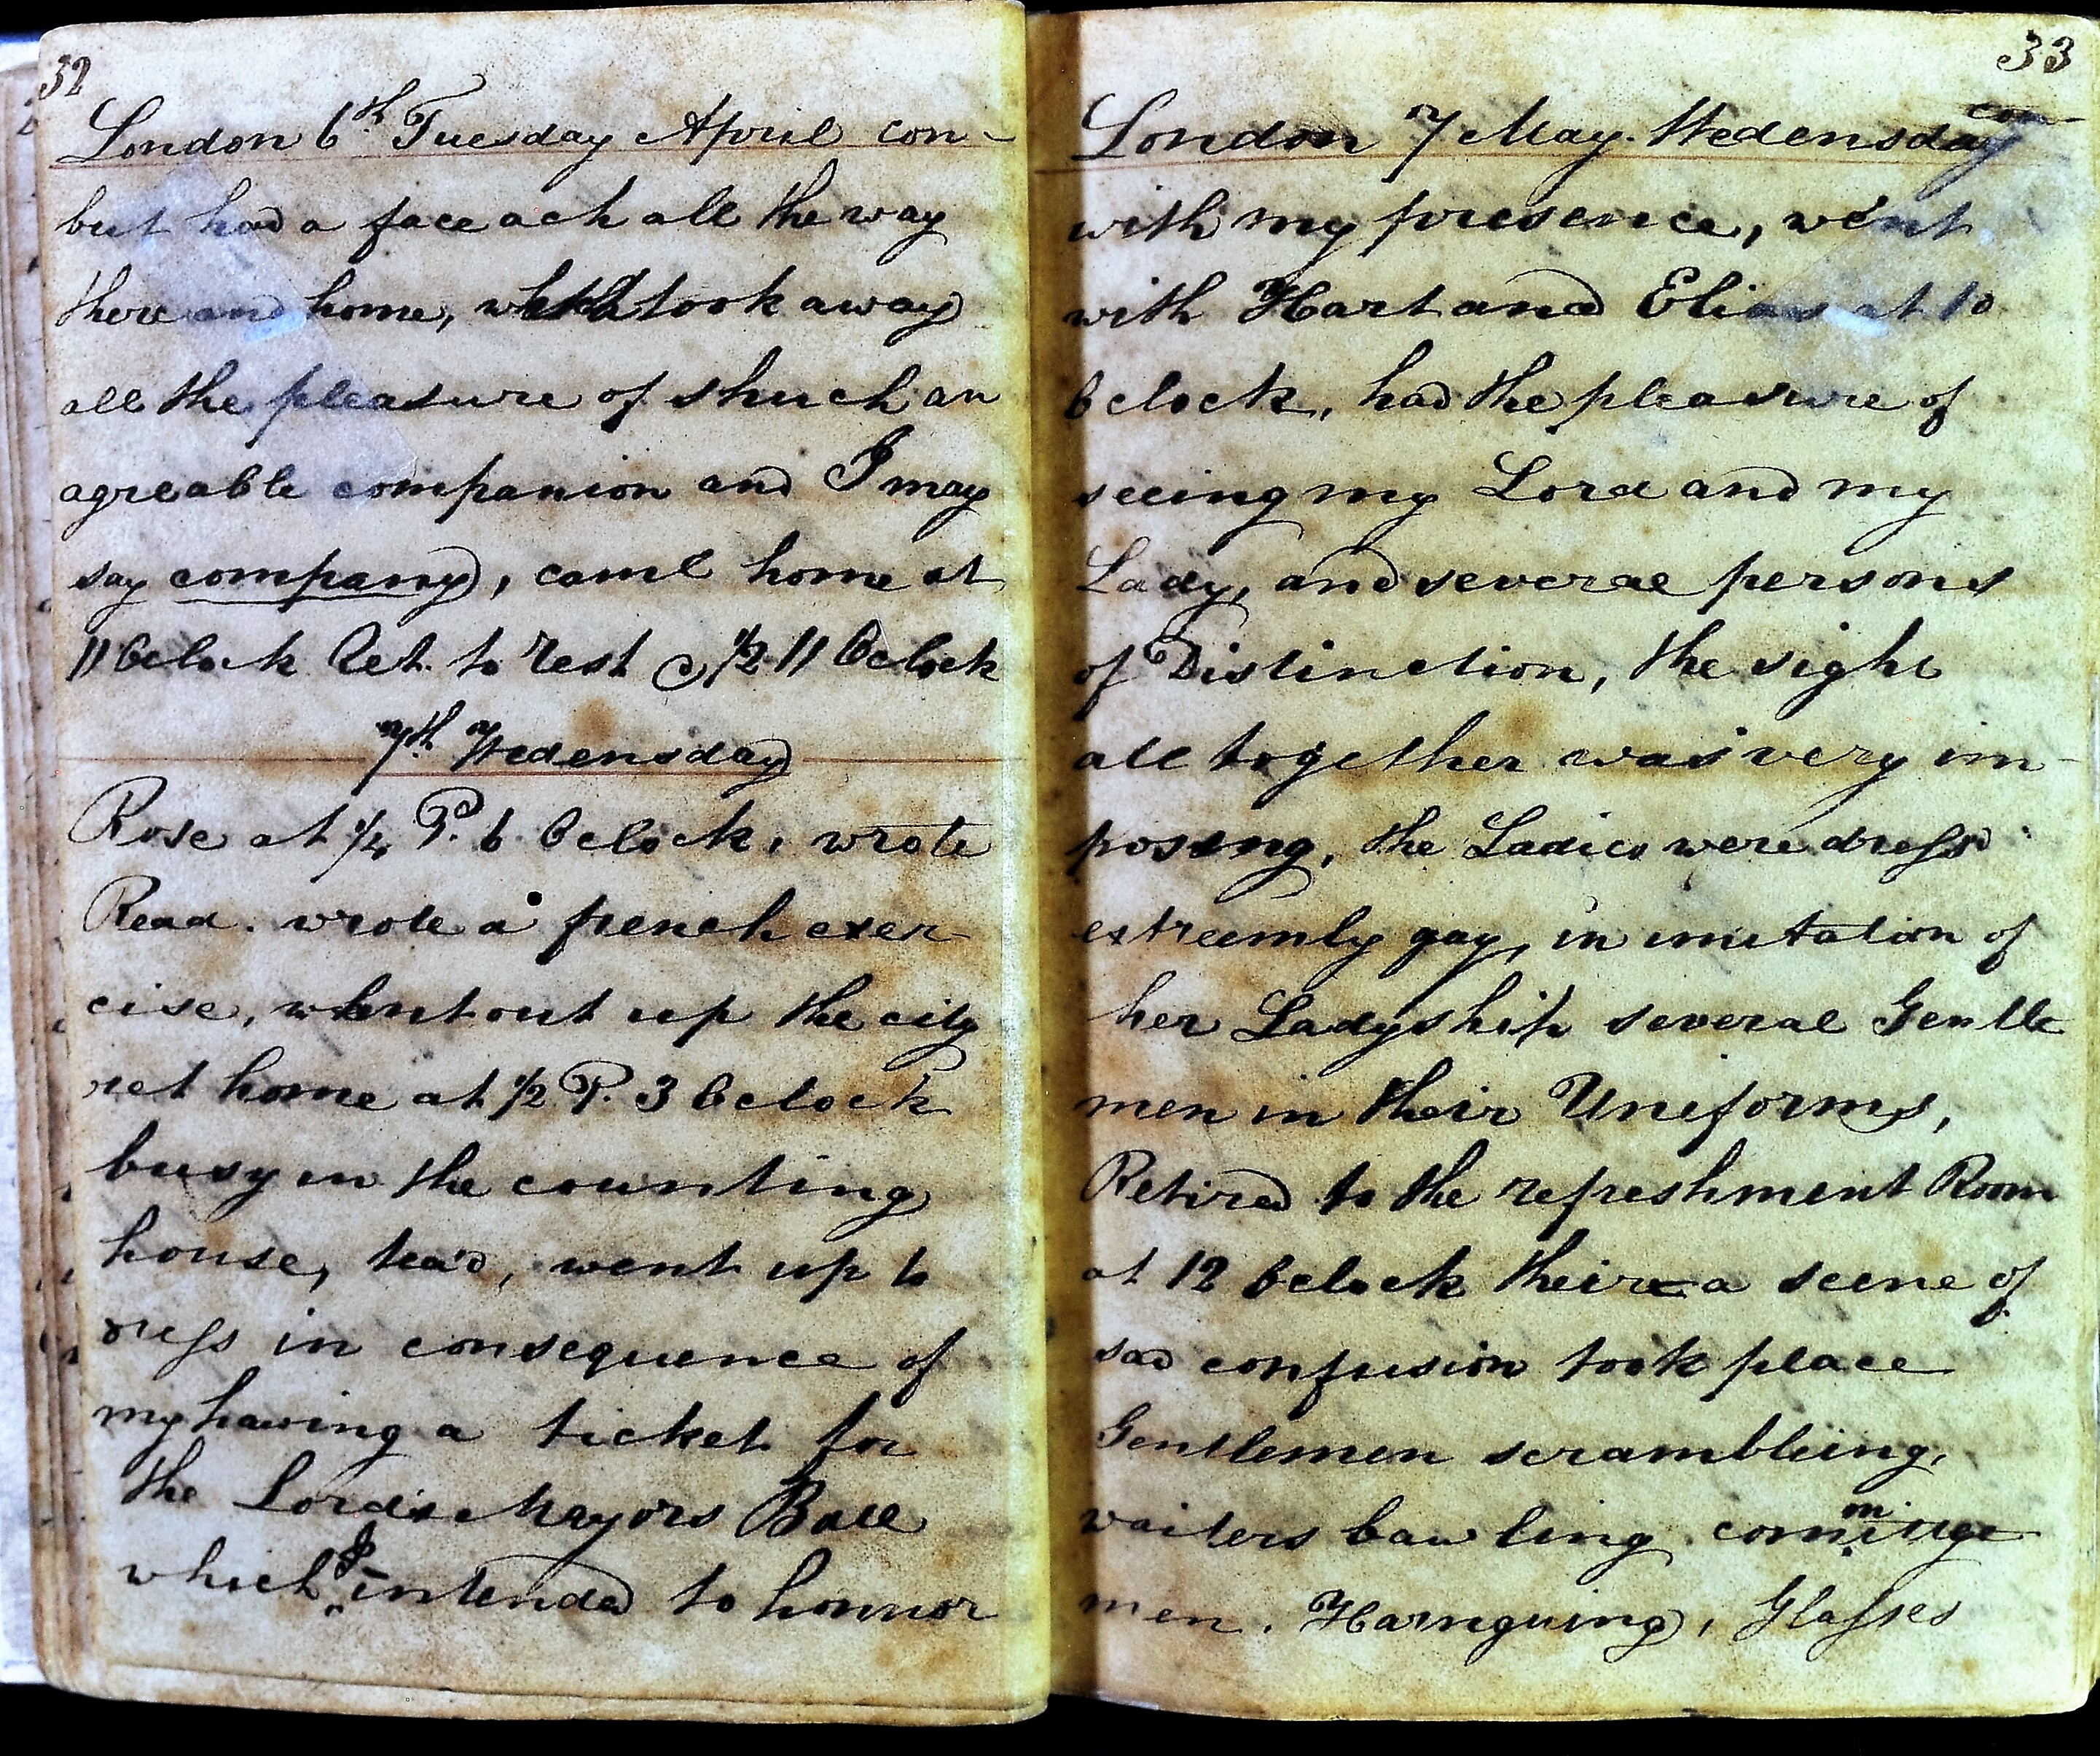 32
London 6th Tuesday April con-
but had a face ach all the way
there and home, which took away
all the pleasure of shuch an
agreable companion and I may
say company, came home at
11 Oclock Ret. to rest @ 1/2 11 Oclock
7th Wedensday
Rose at 1/4 P. 6 Oclock, wrote
Read. wrote a french exer-
cise, whent out up the city
ret home at 1/2 P. 3 Oclock
busy in the counting
house, tea'd, went up to
dress in consequence of
my having a ticket for
the Lord's Mayors Ball
which I intended to honnor
33
London 7 May. Wedensday con-
with my presence, went
with Hart and Elias at 10
Oclock, had the pleasure of
seeing my Lord and my
Lady, and several persons
of Distinction, the sight
all together was very im-
posing, the Ladies were dressd
extreemly gay, in imitation of
her Ladyship several Gentle
men in their Uniforms,
Retired to the refreshment Room
at 12 Oclock their a scene of
sad confusion took place
Gentlemen scrambleing,
waiters bawling. committee
men. Harnguing, Glasses